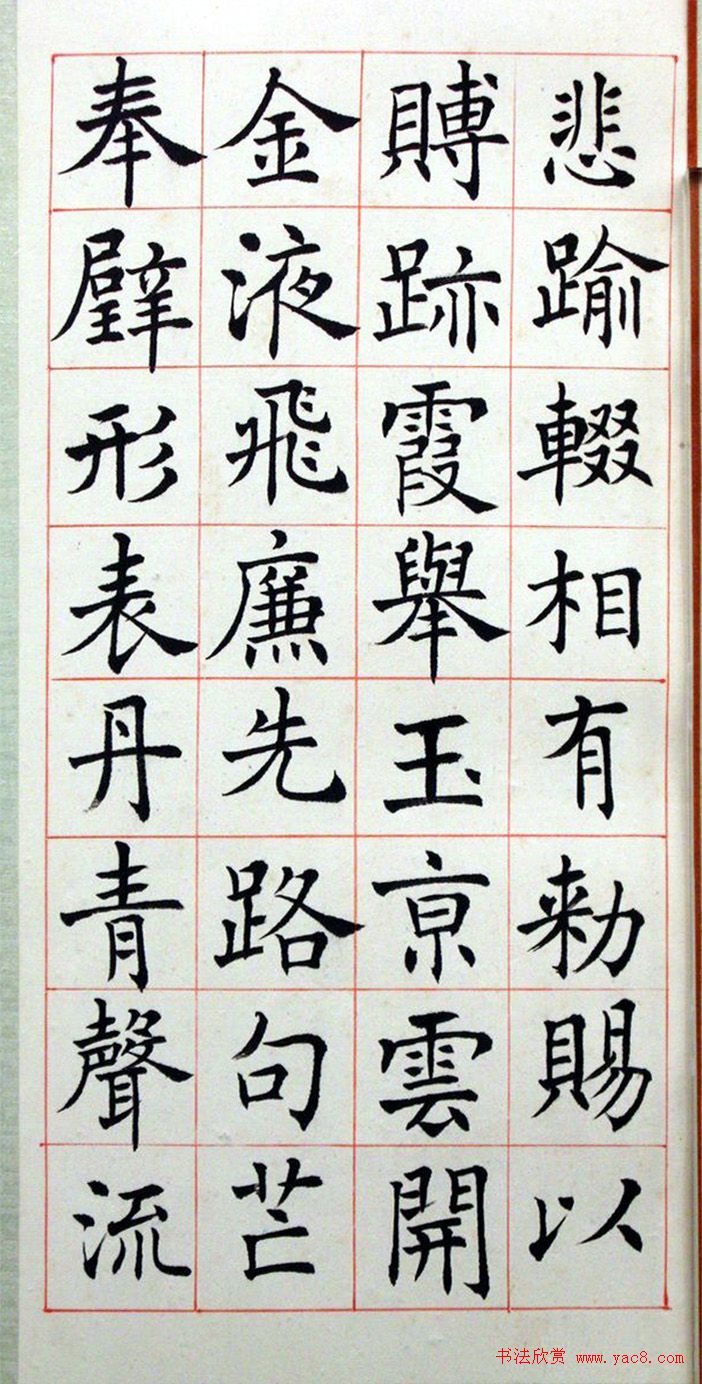 悲踰輟相有勑賜以
賻跡霞舉玉京雲開
金液飛廉先路句芒
奉壁形表丹青聲流
书法欣赏 www.yac8.com